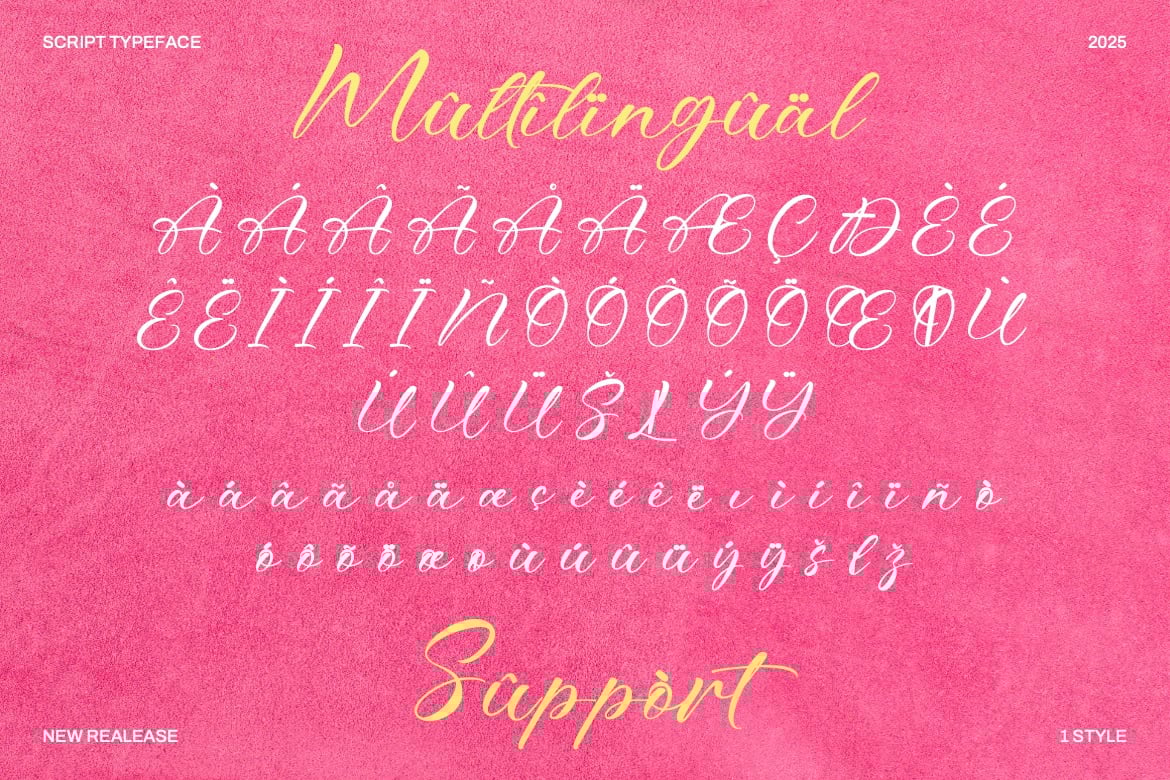 SCRIPT TYPEFACE
2025
Mûltîlïngûäl
À Á Â Ã Å Ä Æ Ç Ð È É
Ê Ë Ì Í Î Ï Ñ Ò Ó Ô Õ Ö Œ Ø Ù
Ú Û Ü Š Ł Ý Ÿ
à á â ã å ä æ ç è é ê ë ı ì í î ï ñ ò
ó ô õ ö œ ø ù ú û ü ý ÿ š ł ž
Sûppòrt
NEW REALEASE
1 STYLE